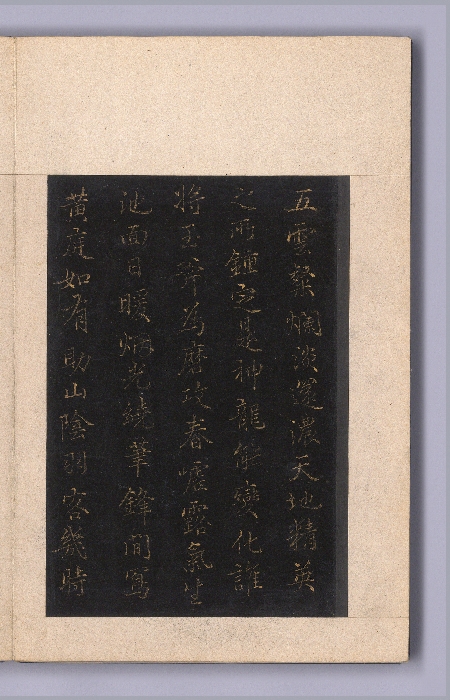 五雲縈爛淡還濃天地精英
之所鍾定是神龍能變化誰
將玉斧為磨礲春嘘露氣生
池面日暖炳光繞筆鋒間寫
黄庭如有助山陰羽客幾時